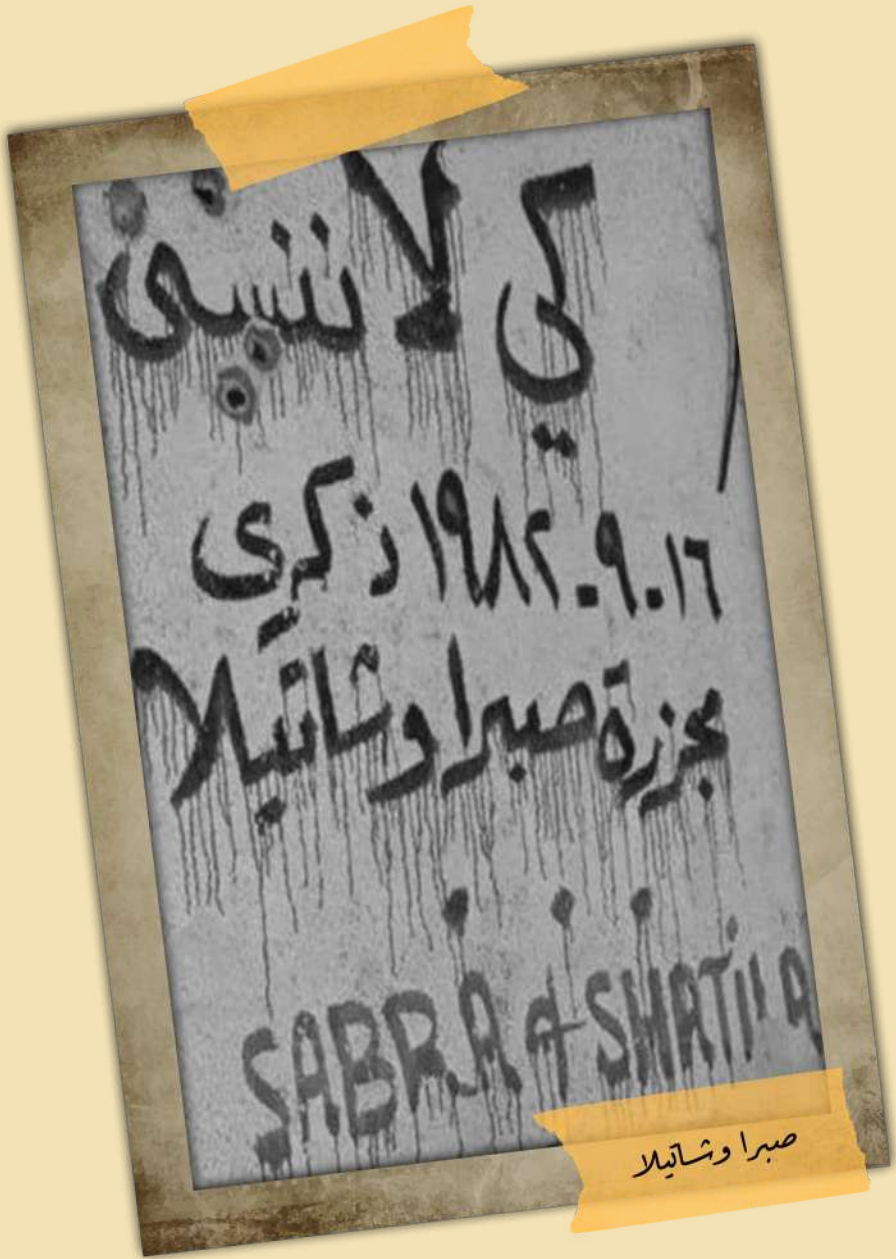 كي لا ننسى
١٦.٩.١٩٨٢ ذكرى
مجزرة صبرا وشاتيلا
SABRA & SHATILA
صبرا وشاتيلا